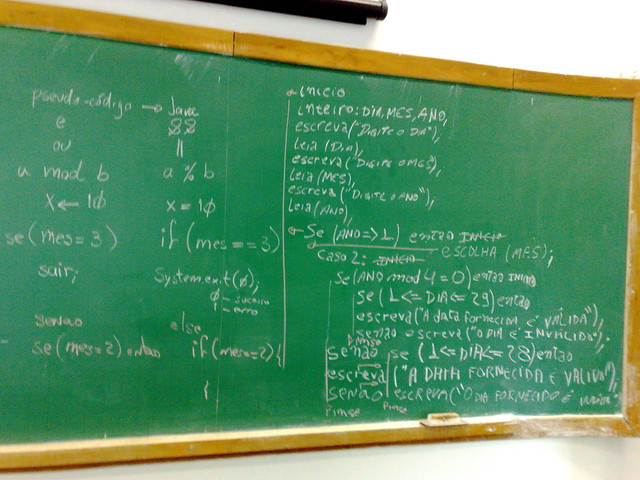 pseudo-código → Java
e &&
ou ||
a mod b a % b
x ← 10 x = 10
se (mes=3) if (mes == 3)
sair; System.exit(0);
0 - sucesso
1 - erro
senao else
se (mes=2) entao if (mes=2) {
{
inicio
inteiro: DIA, MES, ANO,
escreva ("DIGITE O DIA"),
leia (DIA),
escreva ("DIGITE O MES"),
leia (MES),
escreva ("DIGITE O ANO"),
leia (ANO),
Se (ANO => 1) entao INICIO
ESCOLHA (MES);
CASO 2: INICIO
se (ANO mod 4 = 0) entao INICIO
se (1 <= DIA <= 29) entao
escreva ("A data fornecida é VÁLIDA"),
senao escreva ("O DIA É INVALIDO").
senao se (1 <= DIA <= 28) entao
escreva ("A DATA FORNECIDA É VALIDA"),
senao escreva ("O DIA FORNECIDO É
Fimse Fimse